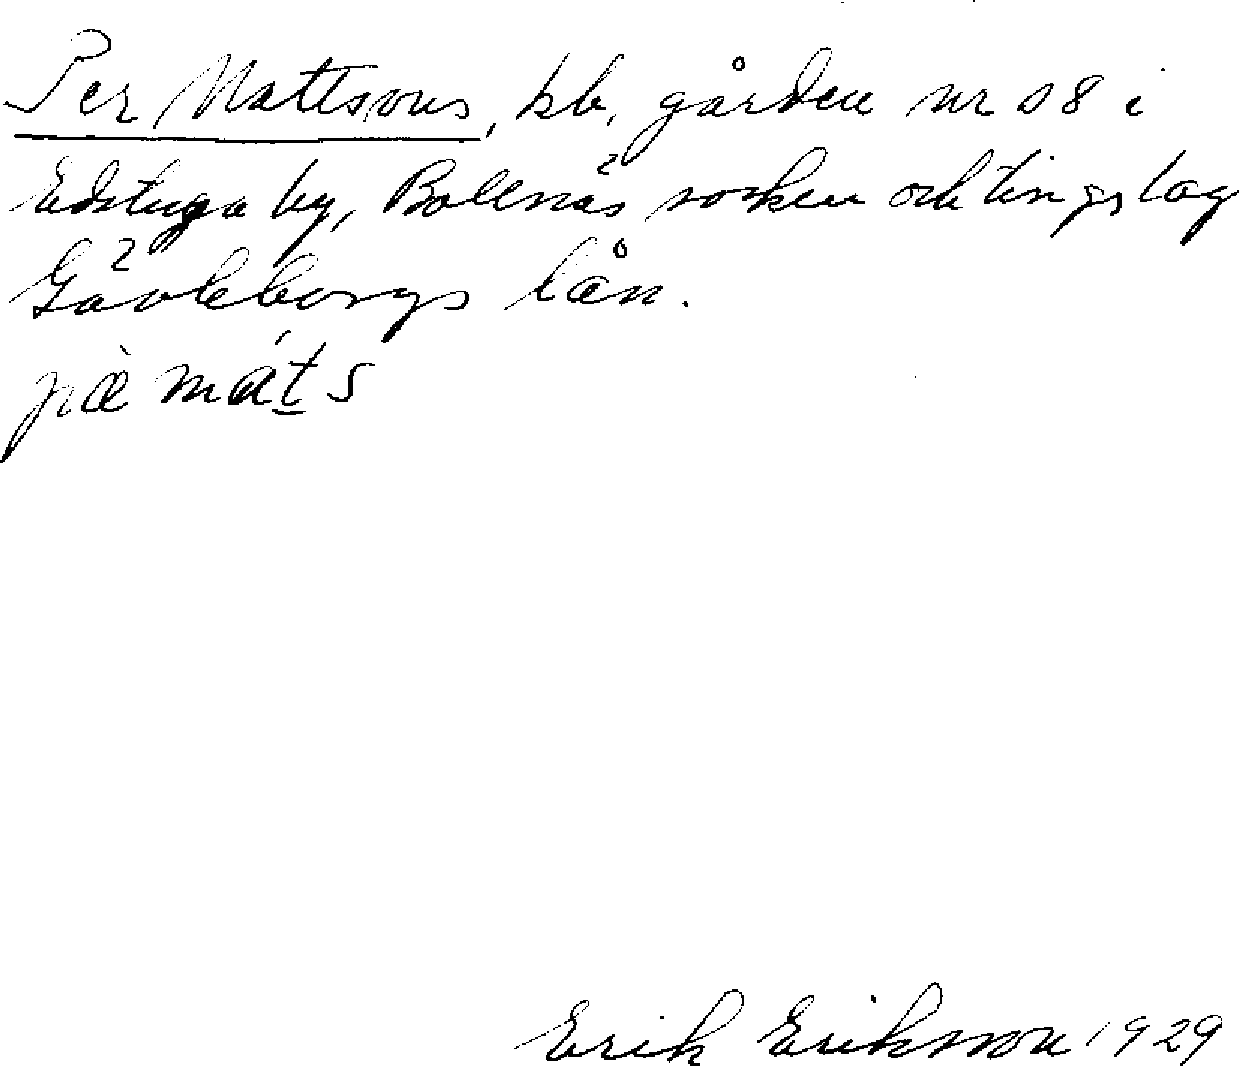 Per Mattsons, bb, gården nr 18 i
Edstuga by, Bollnäs socken och tingslag
Gävleborgs län.
pà máts
Erik Eriksson 1929